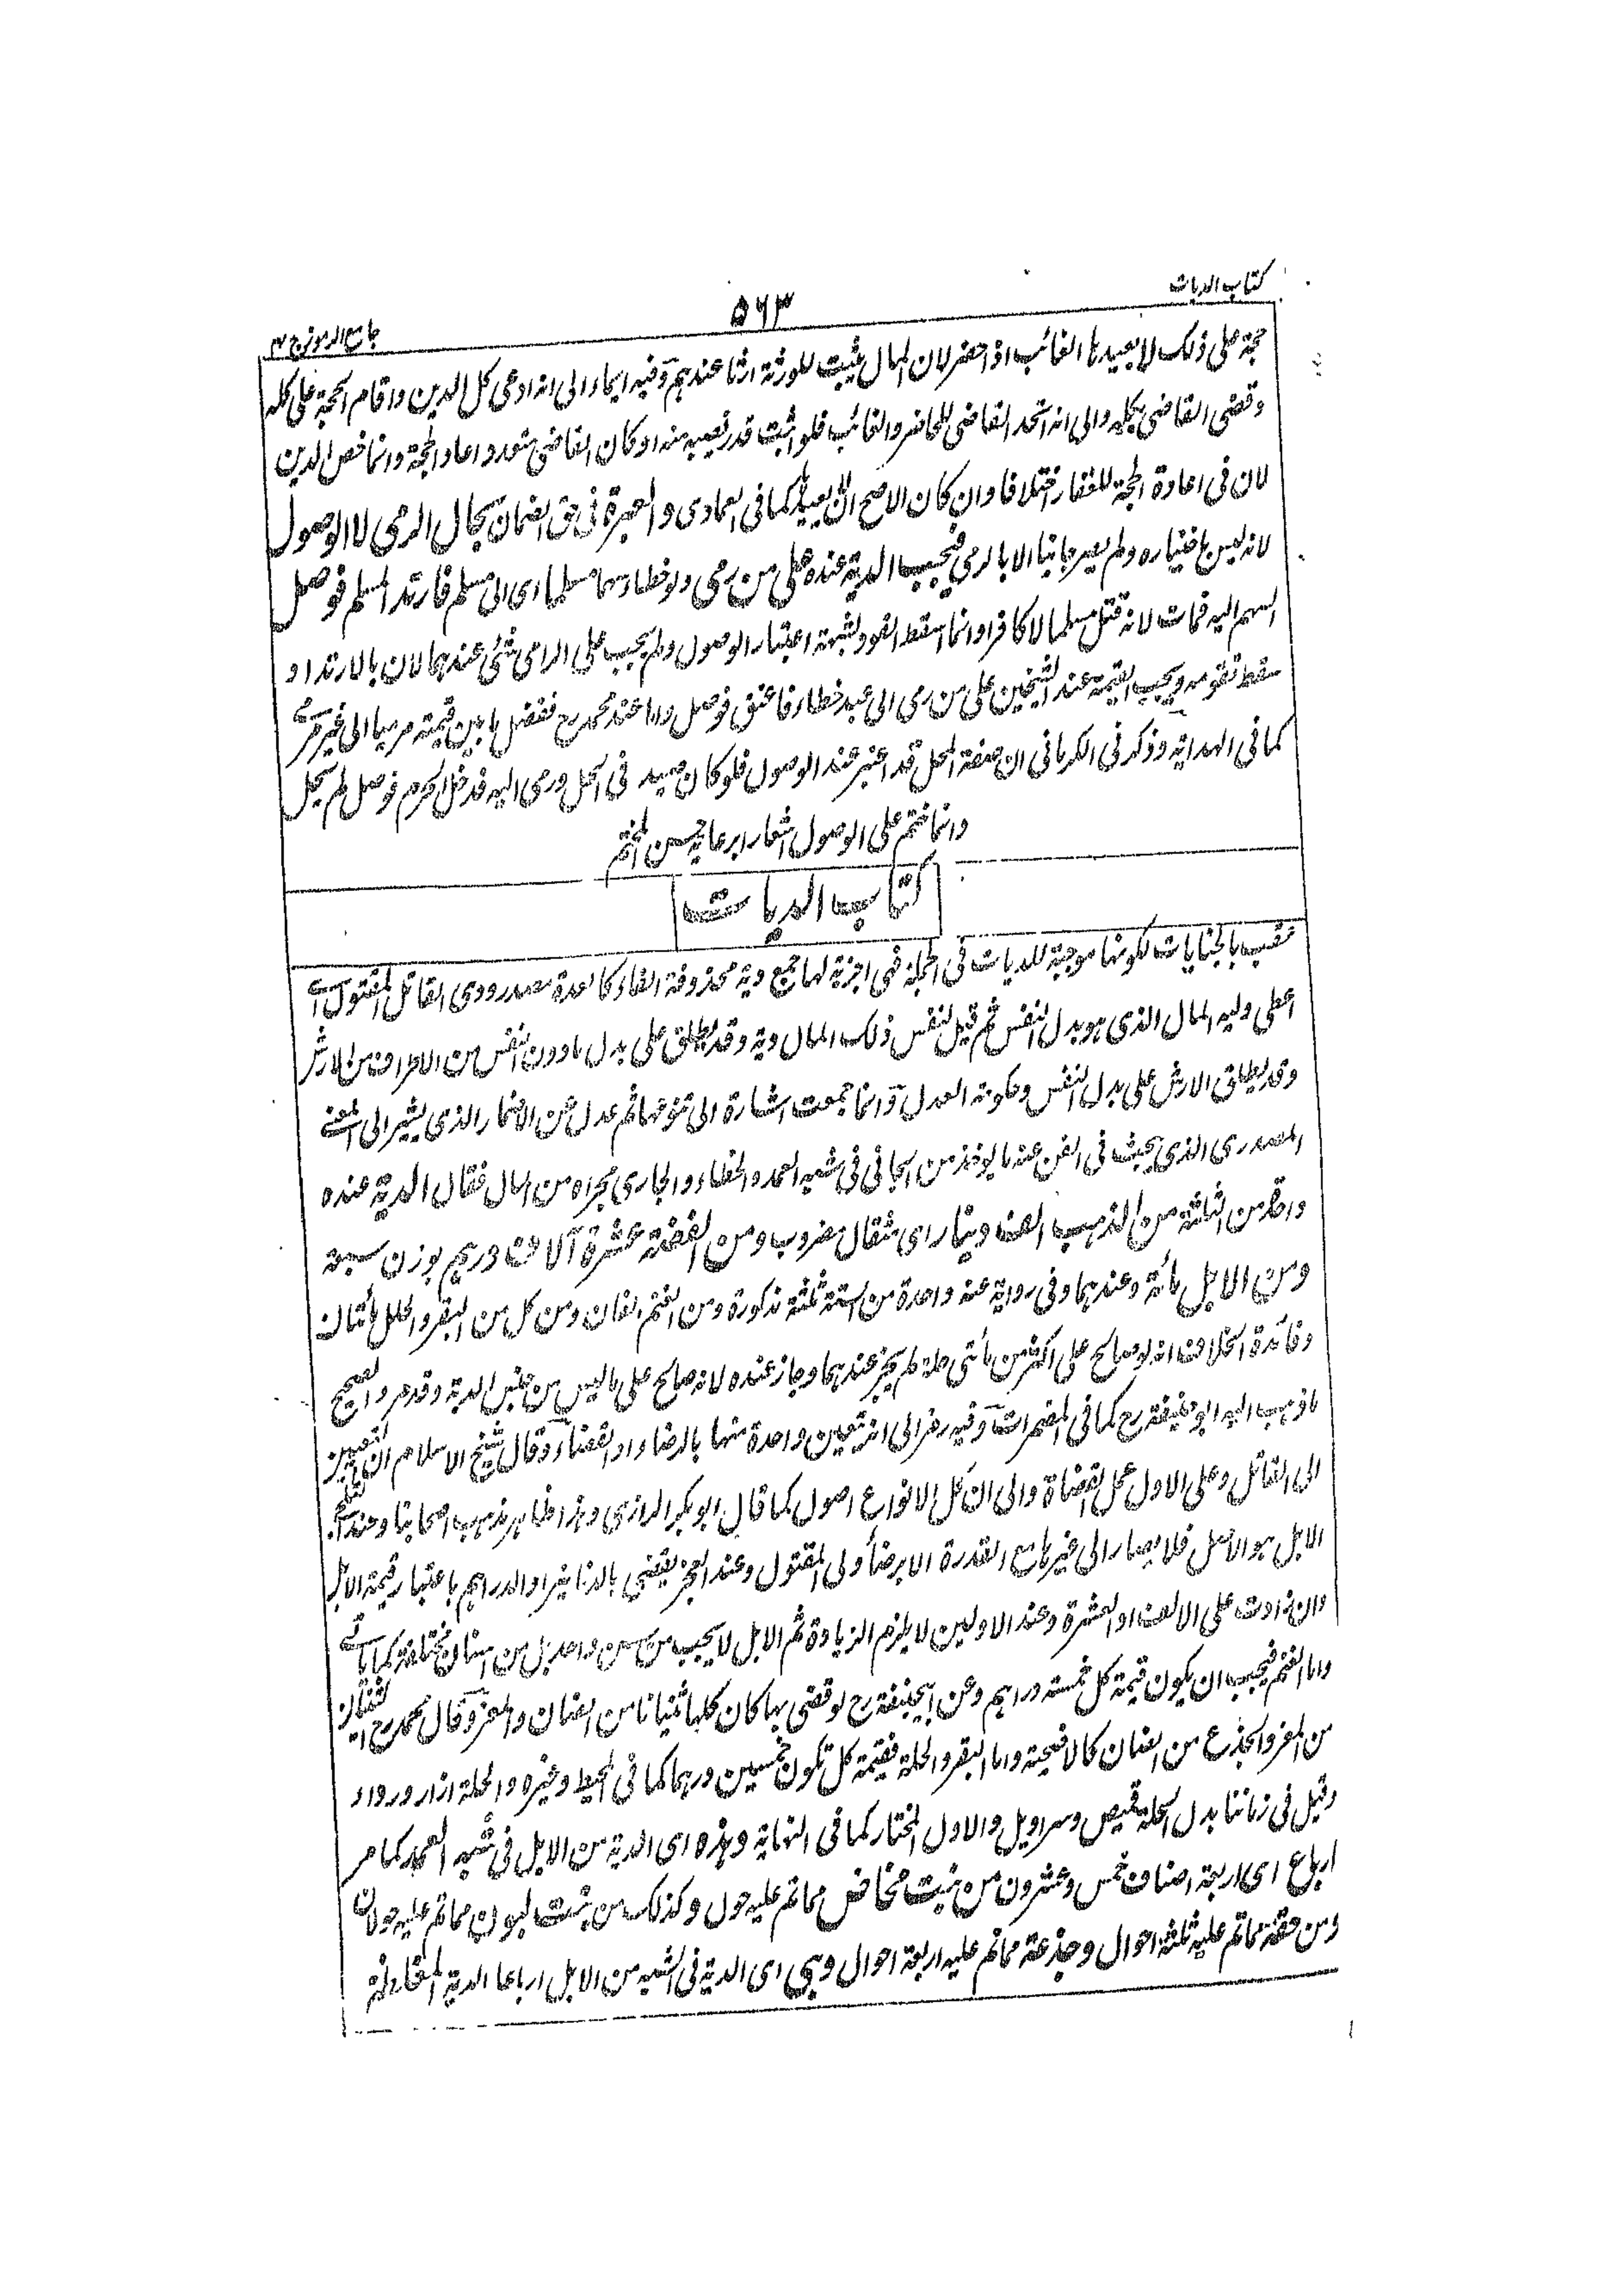 كتاب الديات
۵۶۳
جامع الرموز ج ۳
حجة على ذلك لا يعيدها الغائب اذا حضر لان المال يثبت للورثة ارثا عندهم وفيه ايماء الى انه ادعى كل الدين واقام الحجة على كله
وقضى القاضى بكله والى انه اتحد القاضى للحاضر والغائب فلو اثبت قدر نصيبه منه او كان القاضى متعددا اعاد الحجة وانما خص الدين
لان فى اعادة الحجة للعقار اختلافا وان كان الاصح ان لا يعيد كما فى العمادى والعبرة فى حق الضمان بحال الرمى لا الوصول
لانه ليس باختياره ولم يصر جانيا الا بالرمى فيجب الدية عنده على من رمى ولو خطاء سهما مسلما اى الى مسلم فارتد المسلم فوصل
السهم اليه فمات لانه قتل مسلما لا كافرا وانما اسقط القود لشبهة اعتبار الوصول ولم يجب على الرامى شئ عندهما لان بالارتداد
سقط تقومه ويجب القيمة عند الشيخين على من رمى الى عبد خطاء فاعتق فوصل واما عند محمد رح ففضل ما بين قيمته مرميا الى غير مرمى
كما فى الهداية وذكر فى الكرمانى ان صفة المحل قد اعتبر عند الوصول فلو كان صيد فى الحل ورمى اليه فدخل الحرم فوصل لم يحل
وانما ختم على الوصول اشعارا برعاية حسن المختتم
كتاب الديات
عقب بالجنايات لكونها موجبة للديات فى الجملة فهى اجزية لها جمع دية محذوفة الفاء كالعدة مصدر ودى القاتل المقتول اى
اعطى وليه المال الذى هو بدل النفس ثم قيل لنفس ذلك المال دية وقد يطلق على بدل ما دون النفس من الاطراف من الارش
وقد يطلق الارش على بدل النفس وحكومة العدل وانما جمعت اشارة الى تنوعها ثم عدل عن الاضمار الذى يشير الى المعنى
المصدرى الذى يبحث فى الفن عنه ما يوخذ من الجانى فى شبه العمد والخطاء والجارى مجراه من المال فقال الدية عنده
واحد من الثلثة من الذهب الف دينار اى مثقال مضروب ومن الفضة عشرة آلاف درهم بوزن سبعة
ومن الابل مائة وعندهما وفى رواية عنه واحدة من الستة ثلثة مذكورة ومن الغنم الفان ومن كل من البقر والحلل مائتان
وفائدة الخلاف انه لو صالح على اكثر من مائتى حلة لم يجز عندهما وجاز عنده لانه صالح على ما ليس من جنس الدية وقد مر والصحيح
ما ذهب اليه ابو حنيفة رح كما فى المضمرات وفيه رمز الى انه تعين واحدة منها بالرضاء او القضاء وقال شيخ الاسلام ان التعيين
الى القاتل وعلى الاول عمل القضاة والى ان كل الانواع اصول كما قال ابو بكر الرازى وهذا ظاهر مذهب اصحابنا وعند
الابل هو الاصل فلا يصار الى غيرها مع القدرة الا برضاء ولى المقتول وعند العجز يقضى بالدنانير او الدراهم باعتبار قيمة الابل
وان زادت على الالف او العشرة وعند الاولين لا يلزم الزيادة ثم الابل لا يجب من سن واحد بل من اسنان مختلفة كما ياتى
واما الغنم فيجب ان يكون قيمة كل خمسة دراهم وعن ابيحنيفة رح لو قضى بها كان كلها ثنيانا من الضان والمعز وقال محمد رح
من المعز والجذع من الضان كالاضحية واما البقر والحلة فقيمة كل تكون خمسين درهما كما فى المحيط وغيره والحلة ازار ورداء
وقيل فى زماننا بدل الحلة قميص وسراويل والاول المختار كما فى النهاية وهذه اى الدية من الابل فى شبه العمد كما مر
ارباع اى اربعة اصناف خمس وعشرون من بنت مخاض مما تم عليه حول وكذلك من بنت لبون مما تم عليه حولان
ومن حقة مما تم عليه ثلثة احوال وجذعة مما تم عليه اربعة احوال وهى اى الدية فى الشبه من الابل ارباعا الدية المغلظة